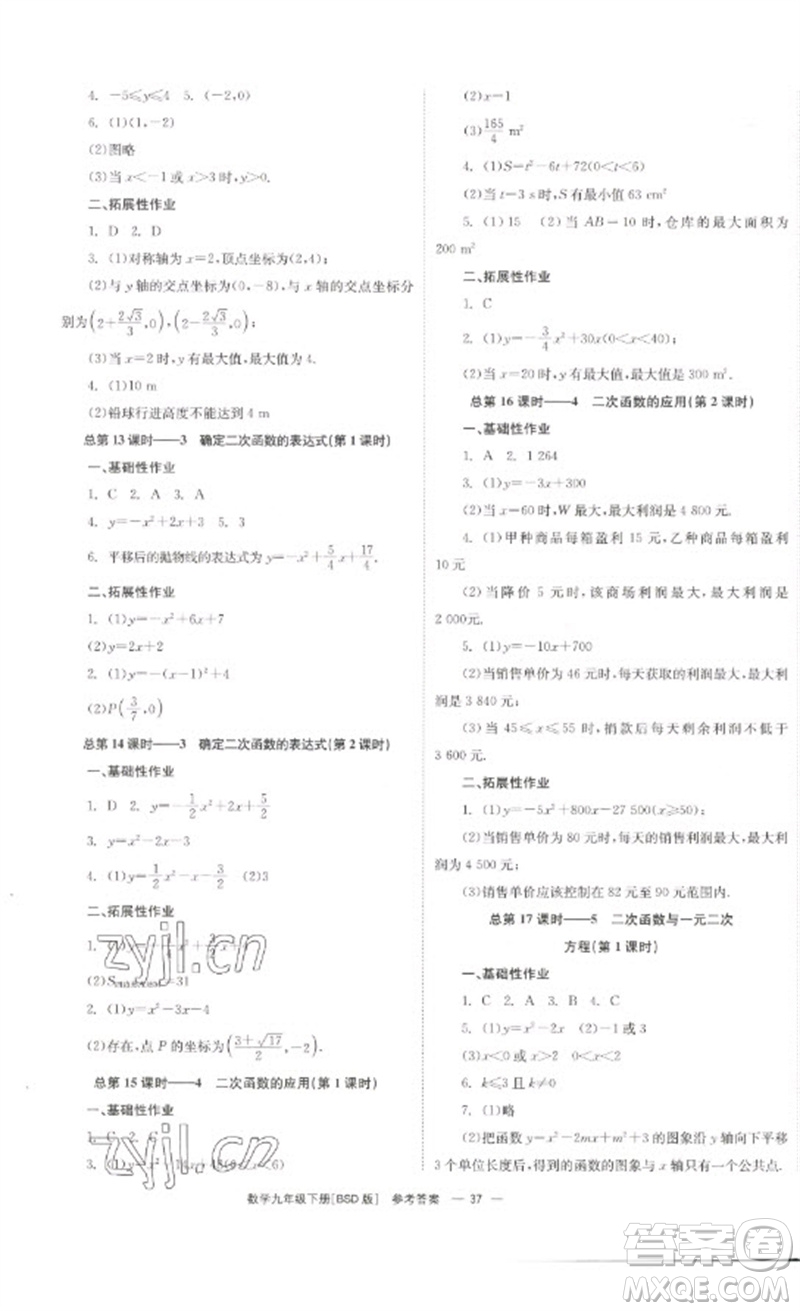 4. -5≤y≤4 5. (-2,0)
6. (1)(1,-2)
(2)图略
(3)当 x<-1 或 x>3 时,y>0.
二、拓展性作业
1. D 2. D
3. (1)对称轴为 x=2,顶点坐标为(2,4);
(2)与 y 轴的交点坐标为(0,-8),与 x 轴的交点坐标分
别为(2+2√3/3,0),(2-2√3/3,0);
(3)当 x=2 时,y 有最大值,最大值为 4.
4. (1)10 m
(2)铅球行进高度不能达到 4 m
总第 13 课时——3 确定二次函数的表达式(第 1 课时)
一、基础性作业
1. C 2. A 3. A
4. y=-x²+2x+3 5. 3
6. 平移后的抛物线的表达式为 y=-x²+5/4x+17/4.
二、拓展性作业
1. (1)y=-x²+6x+7
(2)y=2x+2
2. (1)y=-(x-1)²+4
(2)P(3/7,0)
总第 14 课时——3 确定二次函数的表达式(第 2 课时)
一、基础性作业
1. D 2. y=-1/2x²+2x+5/2
3. y=x²-2x+3
4. (1)y=1/2x²-x-3/2 (2)3
二、拓展性作业
1.
(2)S =31
2. (1)y=x²-3x-4
(2)存在,点 P 的坐标为((3+√17)/2,-2).
总第 15 课时——4 二次函数的应用(第 1 课时)
一、基础性作业
1. C 2. C
3. (1)
(2)x=1
(3)165/4 m²
4. (1)S=t²-6t+72(0<t<6)
(2)当 t=3 s时,S 有最小值 63 cm²
5. (1)15 (2)当 AB=10 时,仓库的最大面积为
200 m²
二、拓展性作业
1. C
2. (1)y=-3/4x²+30x(0<x<40);
(2)当 x=20 时,y 有最大值,最大值是 300 m².
总第 16 课时——4 二次函数的应用(第 2 课时)
一、基础性作业
1. A 2. 1 264
3. (1)y=-3x+300
(2)当 x=60 时,W 最大,最大利润是 4 800 元.
4. (1)甲种商品每箱盈利 15 元,乙种商品每箱盈利
10 元
(2)当降价 5 元时,该商场利润最大,最大利润是
2 000元.
5. (1)y=-10x+700
(2)当销售单价为 46 元时,每天获取的利润最大,最大利
润是 3 840 元;
(3)当 45≤x≤55 时,捐款后每天剩余利润不低于
3 600 元.
二、拓展性作业
1. (1)y=-5x²+800x-27 500(x≥50);
(2)当销售单价为 80 元时,每天的销售利润最大,最大利
润为 4 500 元;
(3)销售单价应该控制在 82 元至 90 元范围内.
总第 17 课时——5 二次函数与一元二次
方程(第 1 课时)
一、基础性作业
1. C 2. A 3. B 4. C
5. (1)y=x²-2x (2)-1
(3)x<0 0<x<2
6. k≤3 且 k≠0
7. (1)略
(2)把函数 y=x²-2mx+m²+3 的图象沿 y 轴向下平移
3 个单位长度后,得到的函数的图象与 x 轴只有一个公共点.
数学九年级下册[BSD 版] 参考答案 — 37 —
zyjl.cn
zyjl.cn
答案圈
MXQE.COM